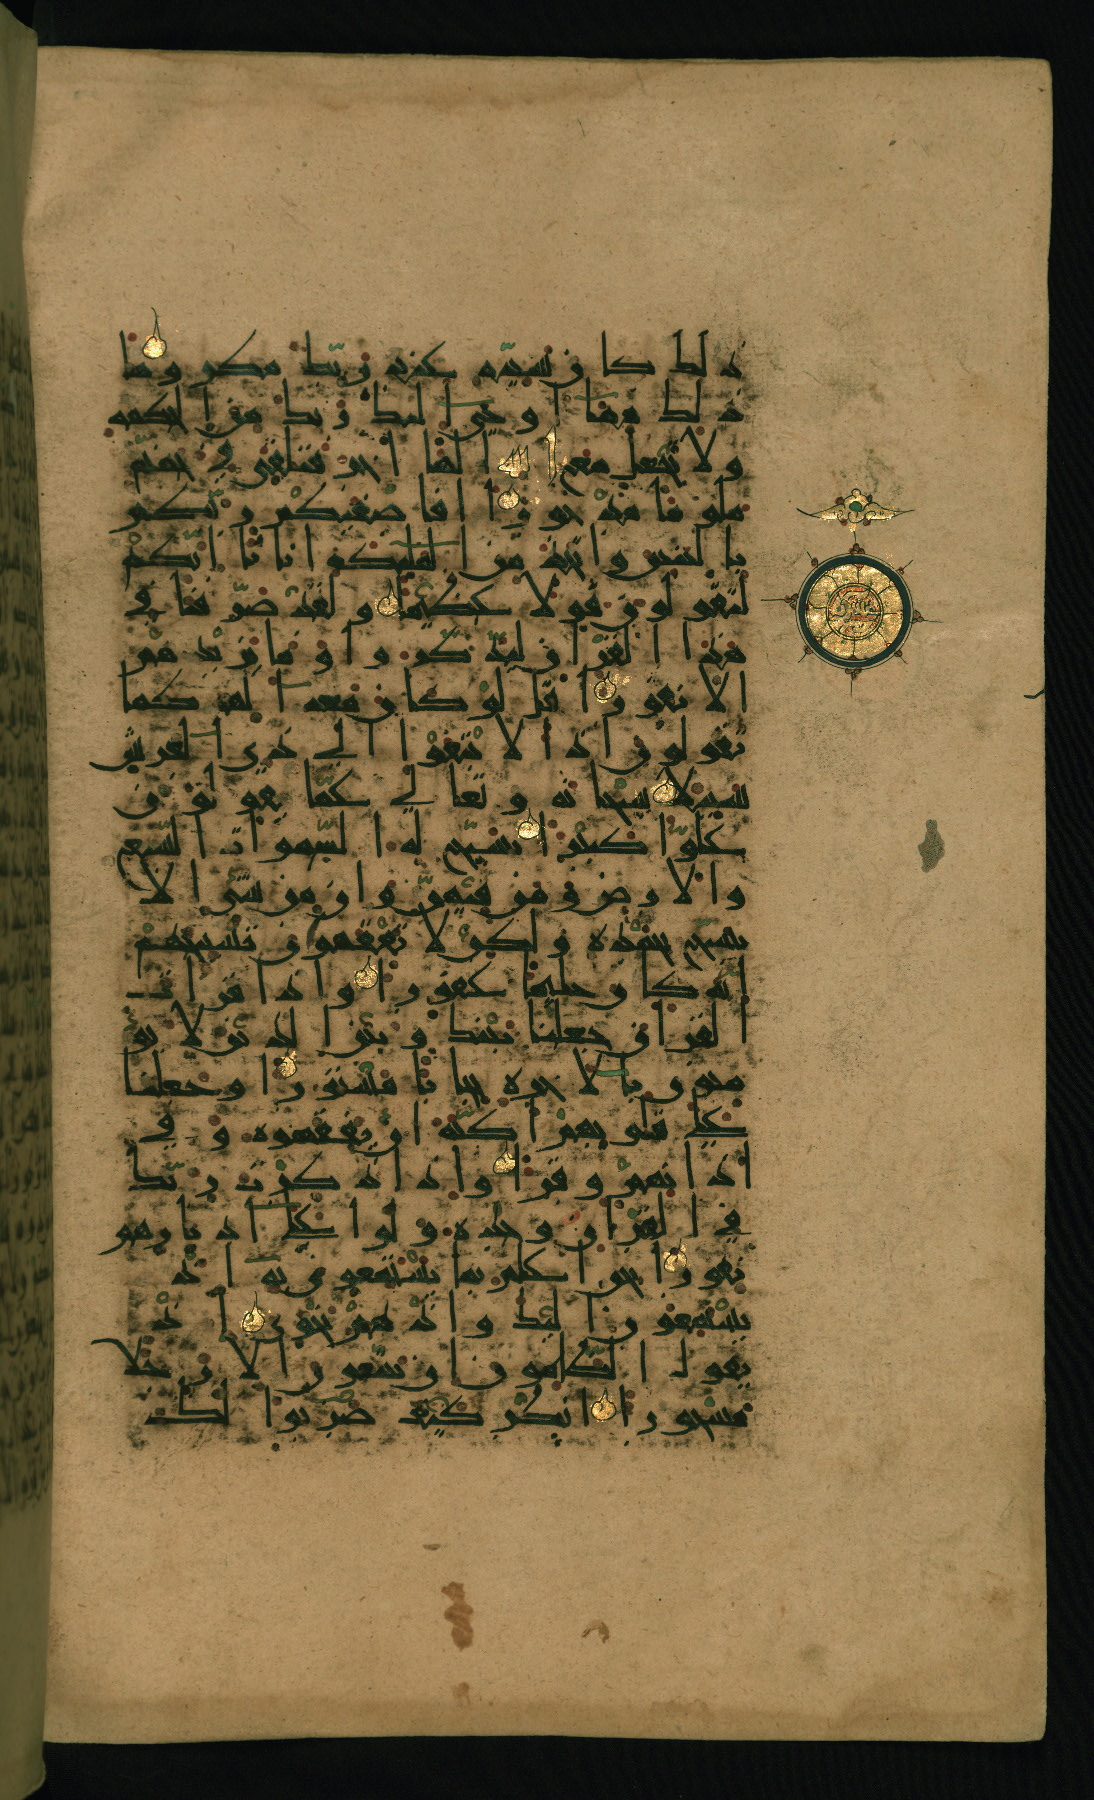 ذلك كان سيئه عند ربك مكروها
ذلك مما أوحى إليك ربك من الحكمة
ولا تجعل مع الله إلها آخر فتلقى في جهنم
ملوما مدحورا أفأصفيكم ربكم
بالبنين واتخذ من الملئكة إناثا إنكم
لتقولون قولا عظيما ولقد صرفنا في
هذا القرآن ليذكروا وما يزيدهم
إلا نفورا قل لو كان معه آلهة كما
يقولون إذا لابتغوا إلى ذي العرش
سبيلا سبحانه وتعالى عما يقولون
علوا كبيرا تسبح له السموات السبع
والأرض ومن فيهن وإن من شيء إلا
يسبح بحمده ولكن لا تفقهون تسبيحهم
إنه كان حليما غفورا وإذا قرأت
القرآن جعلنا بينك وبين الذين لا يؤ
منون بالآخرة حجابا مستورا وجعلنا
على قلوبهم أكنة أن يفقهوه وفي
آذانهم وقرا وإذا ذكرت ربك
في القرآن وحده ولوا على أدبارهم
نفورا نحن أعلم بما يستمعون به إذ
يستمعون إليك وإذ هم نجوى إذ
يقول الظالمون إن تتبعون إلا رجلا
مسحورا انظر كيف ضربوا لك